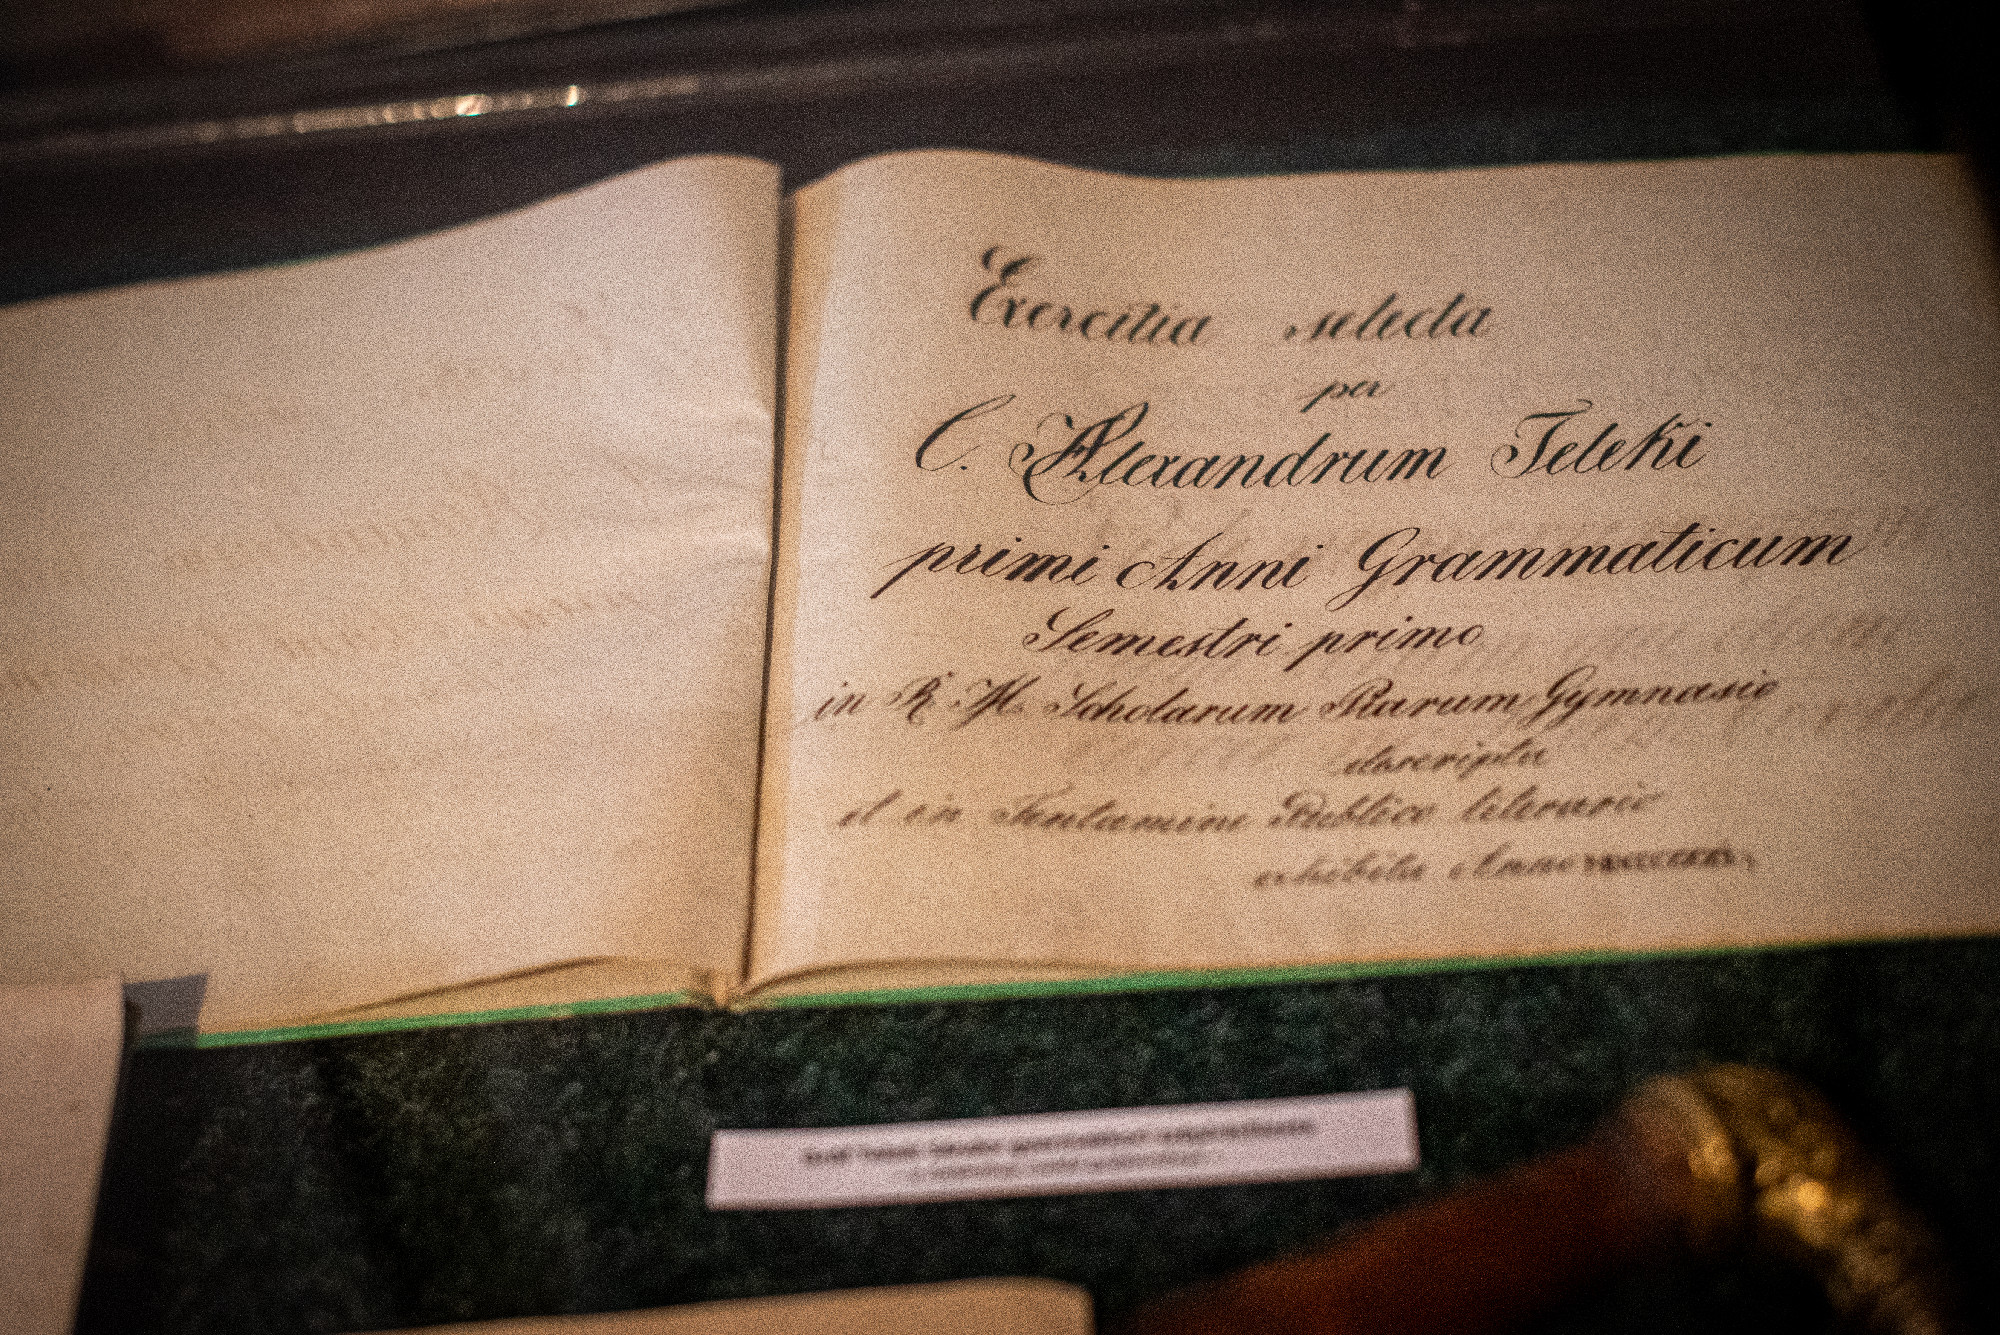 Exercitia selecta
per
C. Alexandrum Teleki
primi Anni Grammaticum
Semestri primo
in R. M. Scholarum Piarum Gymnasio
descripta
et in Tentamine Publico literario
exhibita Anno